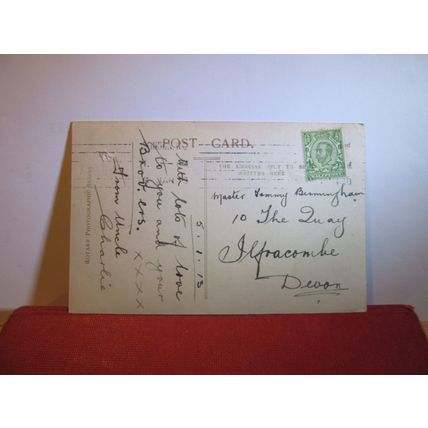 POST CARD.
THE ADDRESS ONLY TO BE
WRITTEN HERE
5.1.13
With lots of love
to you and your
Brothers. xxxx
from Uncle
Charlie
Master Tommy Birmingham
10 The Quay
Ilfracombe
Devon